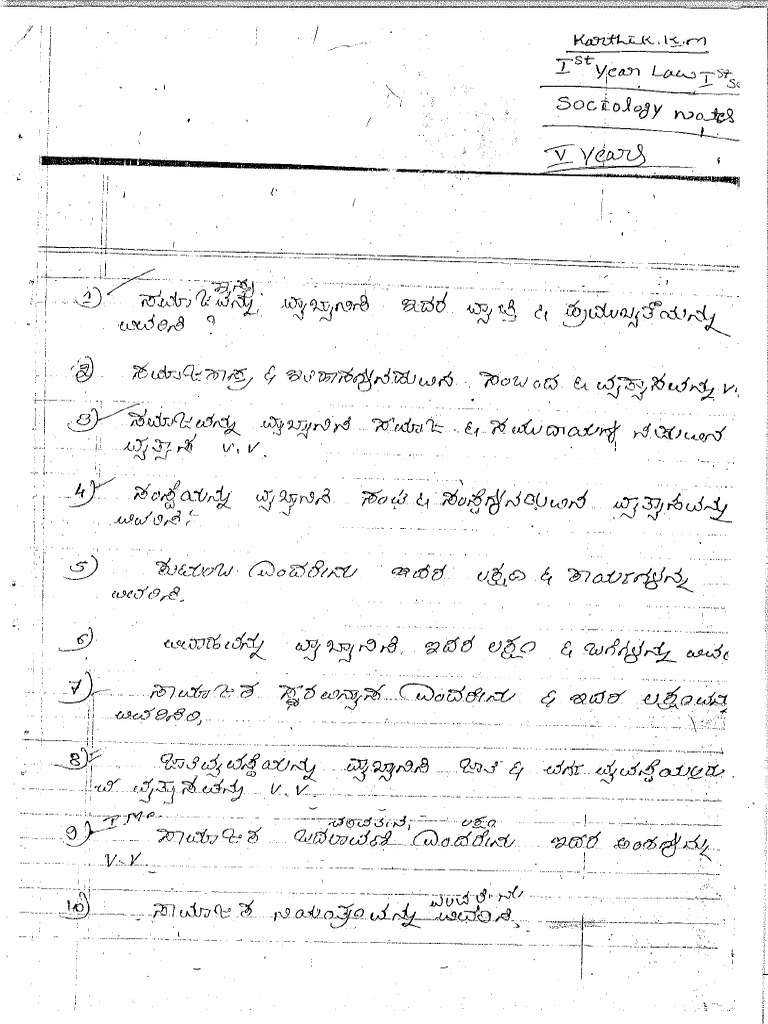 Karthik.K.M
Ist Year Law Ist Se
Sociology notes
V Years
ಶಾಸ್ತ್ರ
1) ಸಮಾಜವನ್ನು ವ್ಯಾಖ್ಯಾನಿಸಿ ಇದರ ವ್ಯಾಪ್ತಿ & ಪ್ರಾಮುಖ್ಯತೆಯನ್ನು
ವಿವರಿಸಿ ?
2) ಸಮಾಜಶಾಸ್ತ್ರ & ಇತಿಹಾಸಗಳ ನಡುವಿನ ಸಂಬಂದ & ವ್ಯತ್ಯಾಸವನ್ನು V.
3) ಸಮಾಜವನ್ನು ವ್ಯಾಖ್ಯಾನಿಸಿ ಸಮಾಜ & ಸಮುದಾಯಗಳ ನಡುವಿನ
ವ್ಯತ್ಯಾಸ V.V.
4) ಸಂಸ್ಥೆಯನ್ನು ವ್ಯಾಖ್ಯಾನಿಸಿ ಸಂಘ & ಸಂಸ್ಥೆಗಳ ನಡುವಿನ ವ್ಯತ್ಯಾಸವನ್ನು
ವಿವರಿಸಿ.
5) ಕುಟುಂಬ ಎಂದರೇನು ಇದರ ಲಕ್ಷಣ & ಕಾರ್ಯಗಳನ್ನು
ವಿವರಿಸಿ.
6) ವಿವಾಹವನ್ನು ವ್ಯಾಖ್ಯಾನಿಸಿ ಇದರ ಲಕ್ಷಣ & ಬಗೆಗಳನ್ನು ವಿವರ
7) ಸಾಮಾಜಿಕ ಸ್ಥರವಿನ್ಯಾಸ ಎಂದರೇನು & ಇದರ ಲಕ್ಷಣವನ್ನು
ವಿವರಿಸಿರಿ.
8) ಜಾತಿವ್ಯವಸ್ಥೆಯನ್ನು ವ್ಯಾಖ್ಯಾನಿಸಿ ಜಾತಿ & ವರ್ಗ ವ್ಯವಸ್ಥೆಯಲ್ಲಿರು
ವ ವ್ಯತ್ಯಾಸವನ್ನು V.V.
I.Mp. ಪರಿವರ್ತನೆ, ಲಕ್ಷಣ
9) ಸಾಮಾಜಿಕ ಬದಲಾವಣೆ ಎಂದರೇನು ಇದರ ಅಂಶಗಳನ್ನು
V.V.
ಎಂದರೇನು
10) ಸಾಮಾಜಿಕ ನಿಯಂತ್ರಣವನ್ನು ವಿವರಿಸಿ.